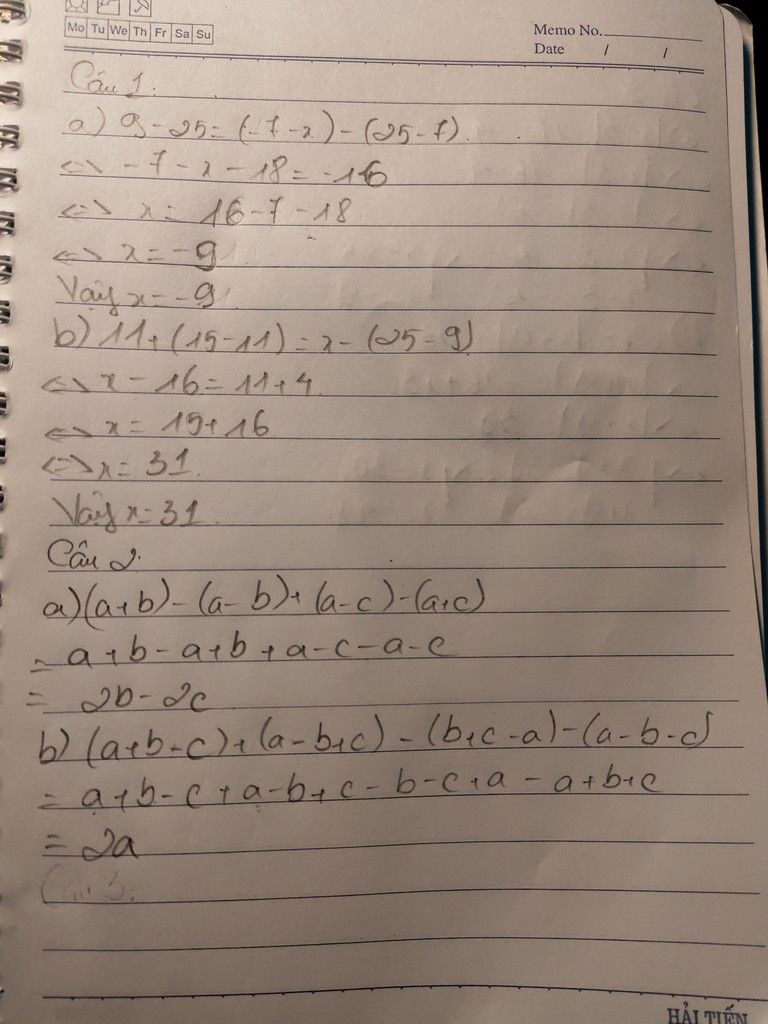 Mo Tu We Th Fr Sa Su
Memo No.
Date / /
Câu 1.
a) 9 - 25 = (-7 - x) - (25 - 7).
<=> -7 - x - 18 = -16
<=> x = 16 - 7 - 18
<=> x = -9
Vậy x = -9
b) 11 + (15 - 11) = x - (25 - 9)
<=> x - 16 = 11 + 4.
<=> x = 15 + 16
<=> x = 31.
Vậy x = 31
Câu 2.
a) (a + b) - (a - b) + (a - c) - (a + c)
= a + b - a + b + a - c - a - c
= 2b - 2c
b) (a + b - c) + (a - b + c) - (b + c - a) - (a - b - c)
= a + b - c + a - b + c - b - c + a - a + b + c
= 2a
Câu 3.
HẢI TIẾN